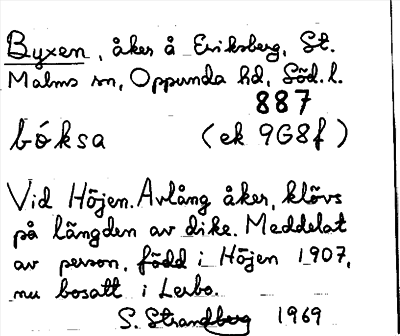 Byxen, åker å Eriksberg, St.
Malms sn, Oppunda hd, Söd. l.
887
bóksa (ek 9G8f)
Vid Höjen. Avlång åker, klövs
på längden av dike. Meddelat
av person, född i Höjen 1907,
nu bosatt i Lerbo.
S. Strandberg 1969